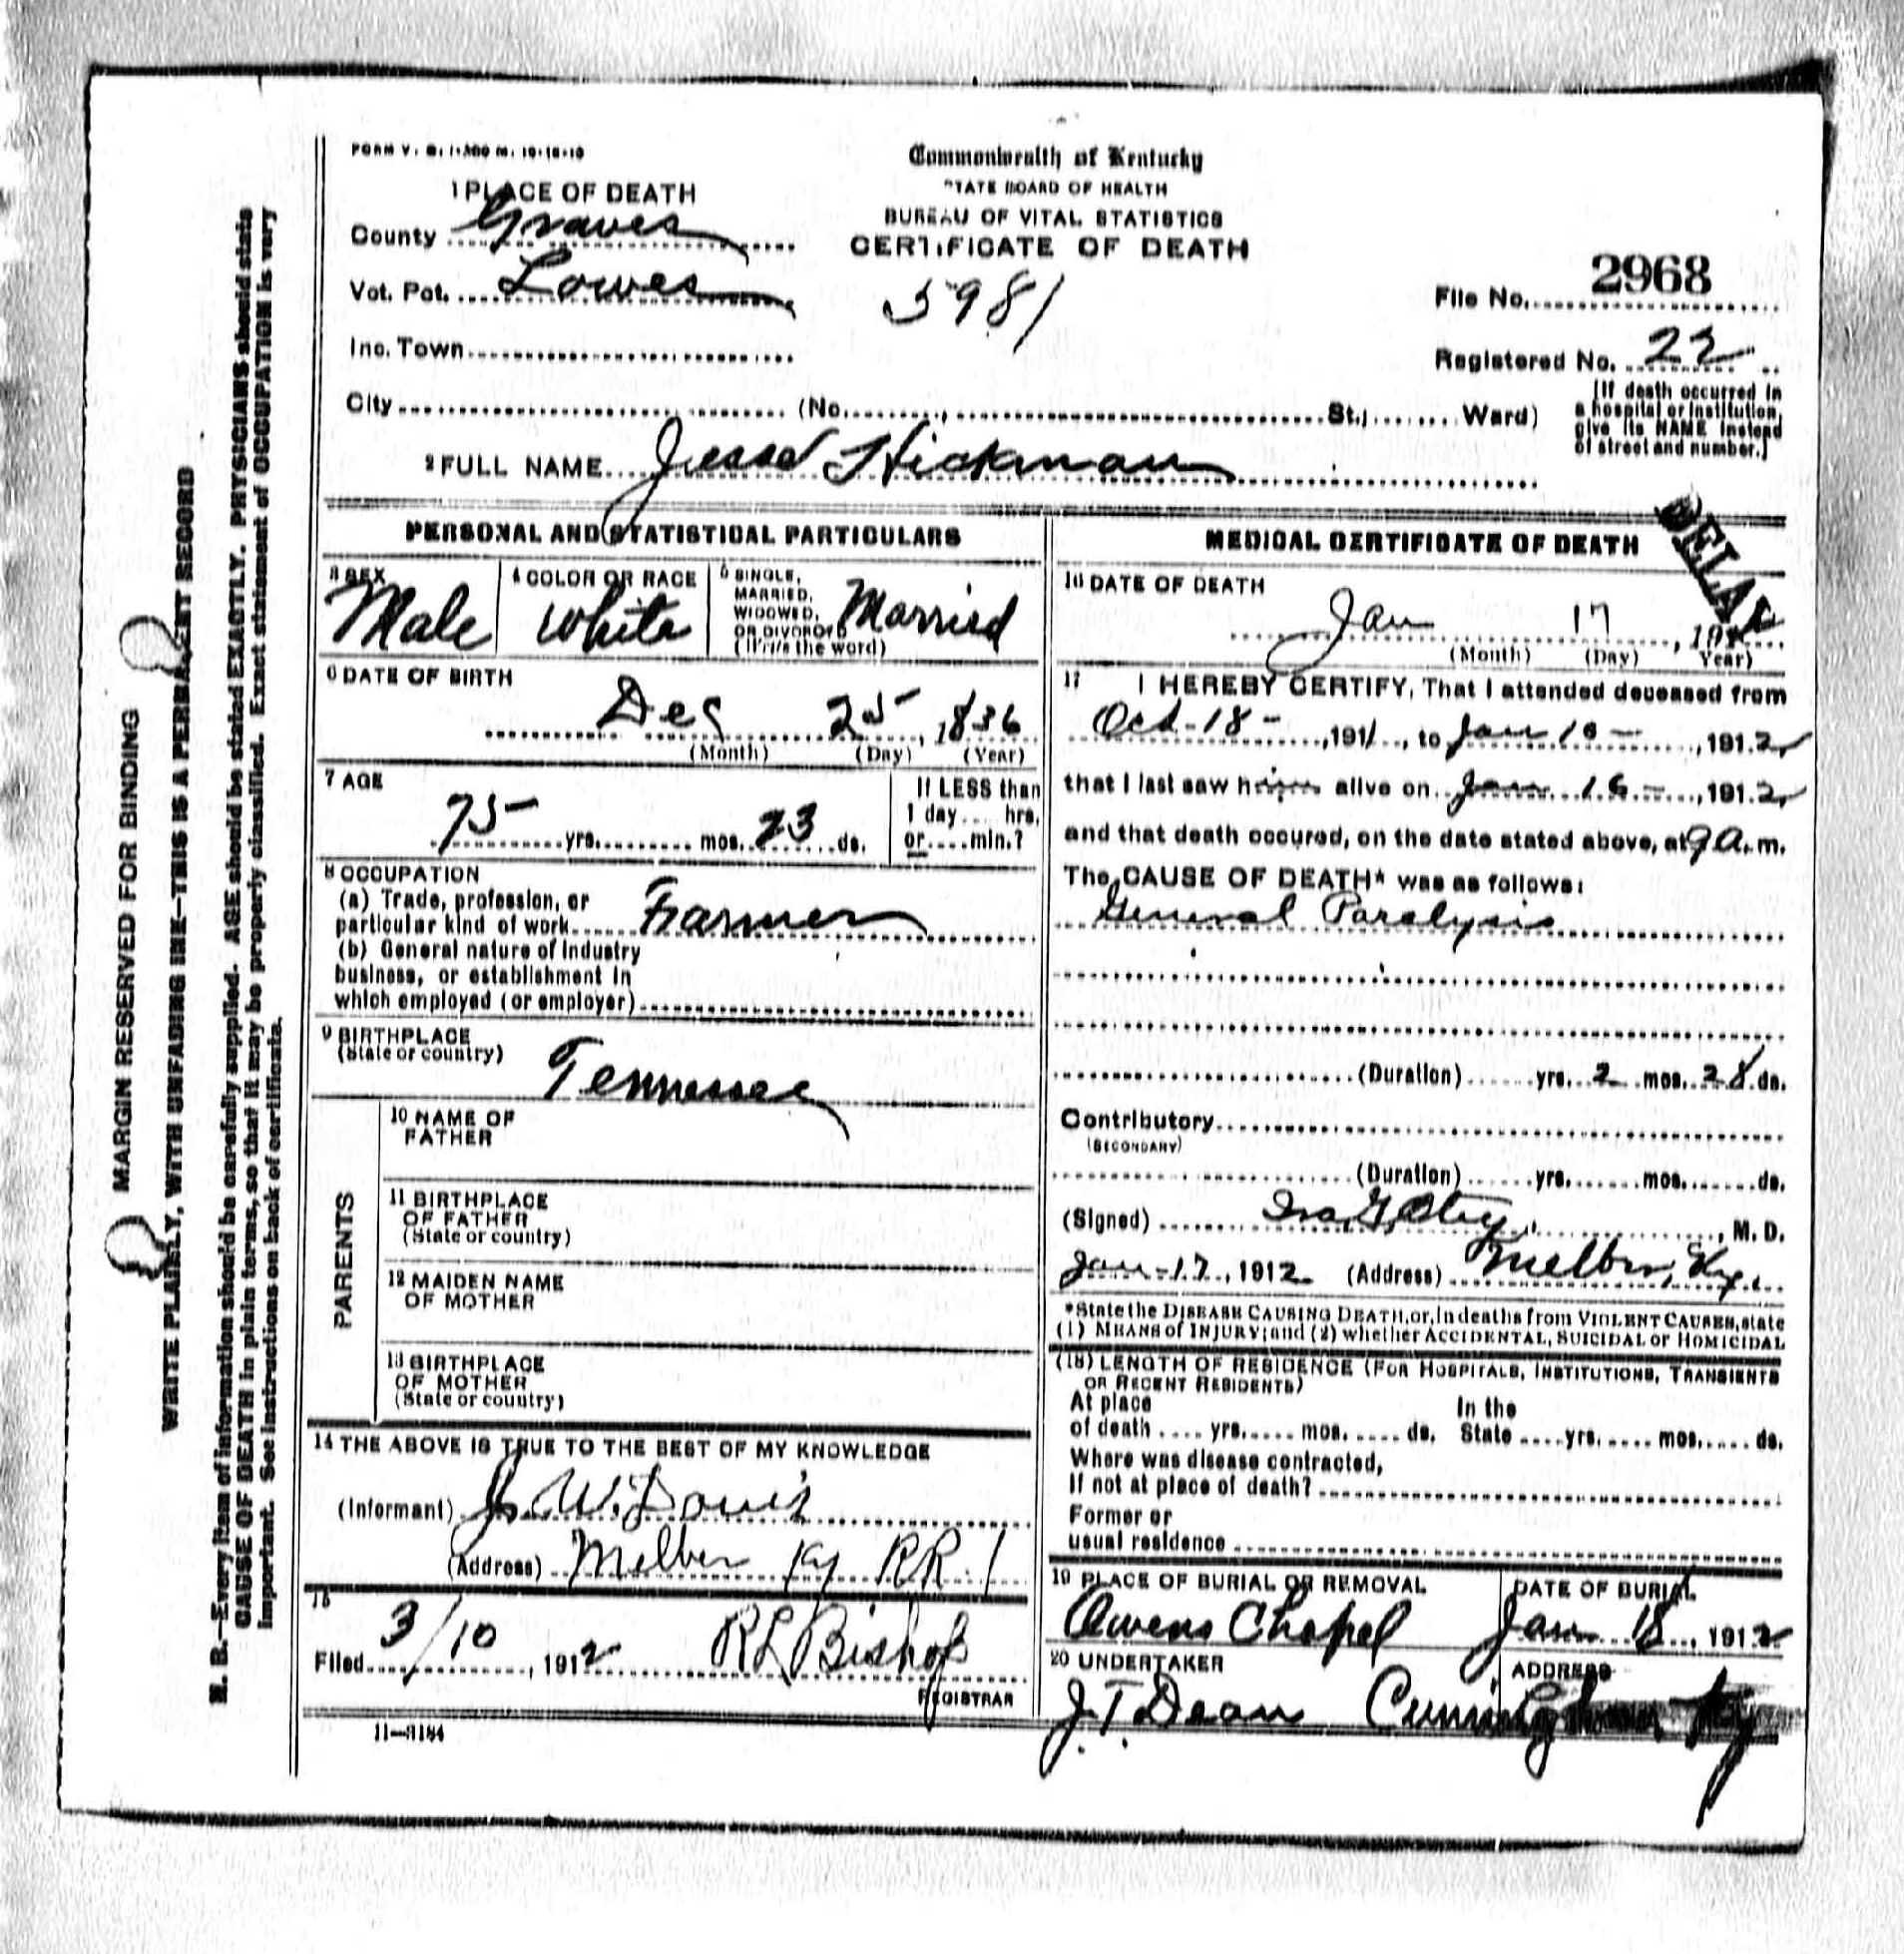 FORM V. S. 1-300 M. 10-18-10
Commonwealth of Kentucky
STATE BOARD OF HEALTH
BUREAU OF VITAL STATISTICS
CERTIFICATE OF DEATH
1 PLACE OF DEATH
County Graves
Vot. Pct. Lowes
5981
File No. 2968
Inc. Town
Registered No. 22
City (No. , St.; Ward)
[If death occurred in
a hospital or institution,
give its NAME instead
of street and number.]
2 FULL NAME Jesse Hickman
DELAY
PERSONAL AND STATISTICAL PARTICULARS
3 SEX
Male
4 COLOR OR RACE
White
5 SINGLE,
MARRIED,
WIDOWED,
OR DIVORCED
(Write the word)
Married
6 DATE OF BIRTH
Dec 25, 1836
(Month) (Day) (Year)
7 AGE
75 yrs. mos. 23 ds.
If LESS than
1 day.... hrs.
or.....min.?
8 OCCUPATION
(a) Trade, profession, or
particular kind of work Farmer
(b) General nature of industry
business, or establishment in
which employed (or employer)
9 BIRTHPLACE
(State or country)
Tennessee
PARENTS
10 NAME OF
FATHER
11 BIRTHPLACE
OF FATHER
(State or country)
12 MAIDEN NAME
OF MOTHER
13 BIRTHPLACE
OF MOTHER
(State or country)
14 THE ABOVE IS TRUE TO THE BEST OF MY KNOWLEDGE
(Informant) J. W. Davis
(Address) Melber Ky RR 1
15
Filed 3/10, 1912 RL Bishop
REGISTRAR
11—3184
MEDICAL CERTIFICATE OF DEATH
16 DATE OF DEATH
Jan 17, 191
(Month) (Day) Year)
17 I HEREBY CERTIFY, That I attended deceased from
Oct-18-, 1911, to Jan 16-, 1912,
that I last saw him alive on Jan 16-, 1912,
and that death occured, on the date stated above, at 9 A. m.
The CAUSE OF DEATH* was as follows:
General Paralysis
(Duration) yrs. 2 mos. 28 ds.
Contributory
(SECONDARY)
(Duration) yrs. mos. ds.
(Signed) , M. D.
Jan-17, 1912 (Address) Melber, Ky.
*State the DISEASE CAUSING DEATH, or, in deaths from VIOLENT CAUSES, state
(1) MEANS of INJURY; and (2) whether ACCIDENTAL, SUICIDAL or HOMICIDAL
(18) LENGTH OF RESIDENCE (FOR HOSPITALS, INSTITUTIONS, TRANSIENTS
OR RECENT RESIDENTS)
At place In the
of death .... yrs..... mos. .... ds. State ....yrs. .... mos..... ds.
Where was disease contracted,
If not at place of death?
Former or
usual residence
19 PLACE OF BURIAL OR REMOVAL
Owens Chapel
DATE OF BURIAL
Jan 18, 1912
20 UNDERTAKER
J. T. Dean
ADDRESS
Cunningham Ky
MARGIN RESERVED FOR BINDING
WRITE PLAINLY, WITH UNFADING INK—THIS IS A PERMANENT RECORD
N. B.—Every item of information should be carefully supplied. AGE should be stated EXACTLY. PHYSICIANS should state
CAUSE OF DEATH in plain terms, so that it may be properly classified. Exact statement of OCCUPATION is very
important. See instructions on back of certificate.